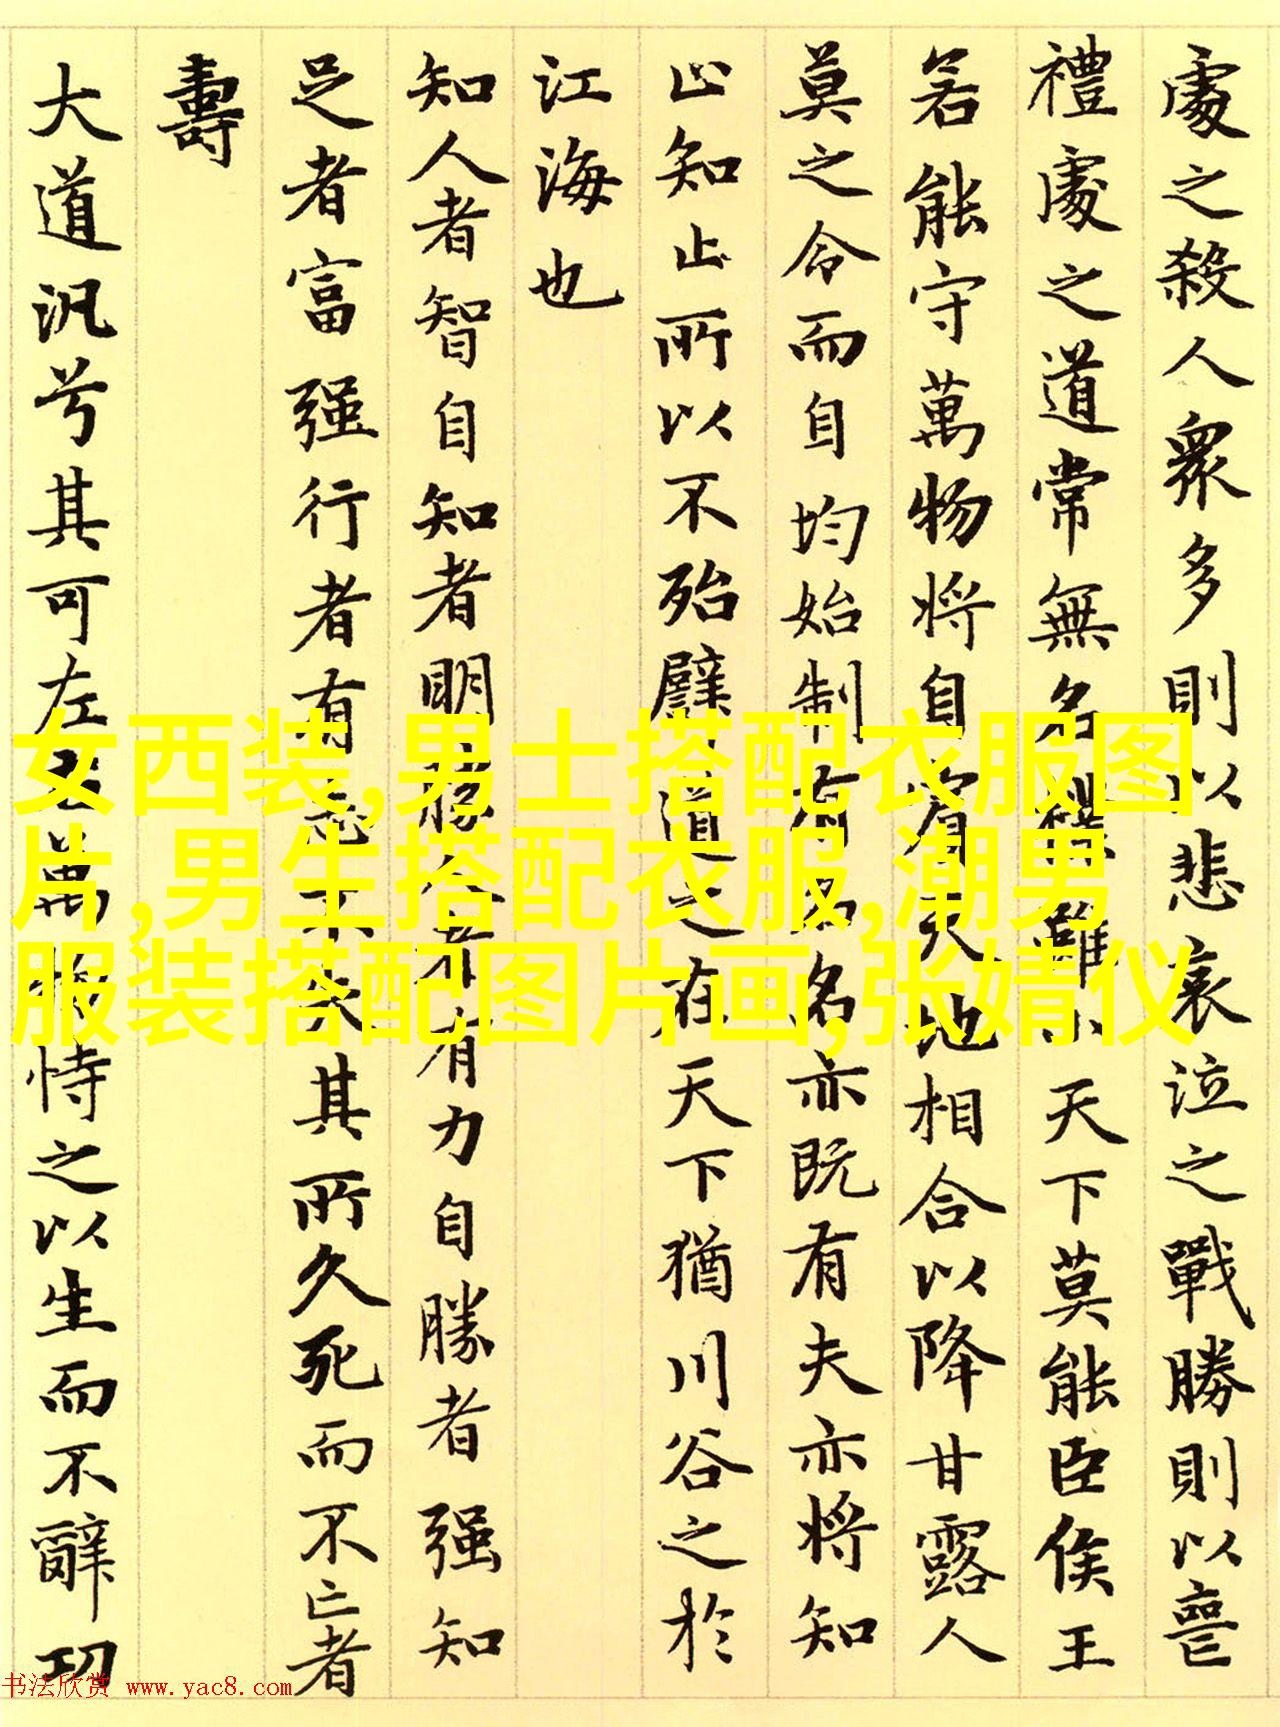 處之殺人衆多則以悲哀泣之戰勝則以喪
禮處之道常無名樸雖小天下莫能臣侯王
若能守萬物將自賓天地相合以降甘露人
莫之令而自均始制有名名亦既有夫亦將知
止知止所以不殆譬道之在天下猶川谷之於
江海也
知人者智自知者明勝人者有力自勝者强知
足者富强行者有志不失其所久死而不亡者
壽
大道汎兮其可左右萬物恃之以生而不辭功
女西装,男士搭配衣服图
片,男生搭配衣服,潮男
服装搭配图片画,张婧仪
书法欣赏 www.yac8.com